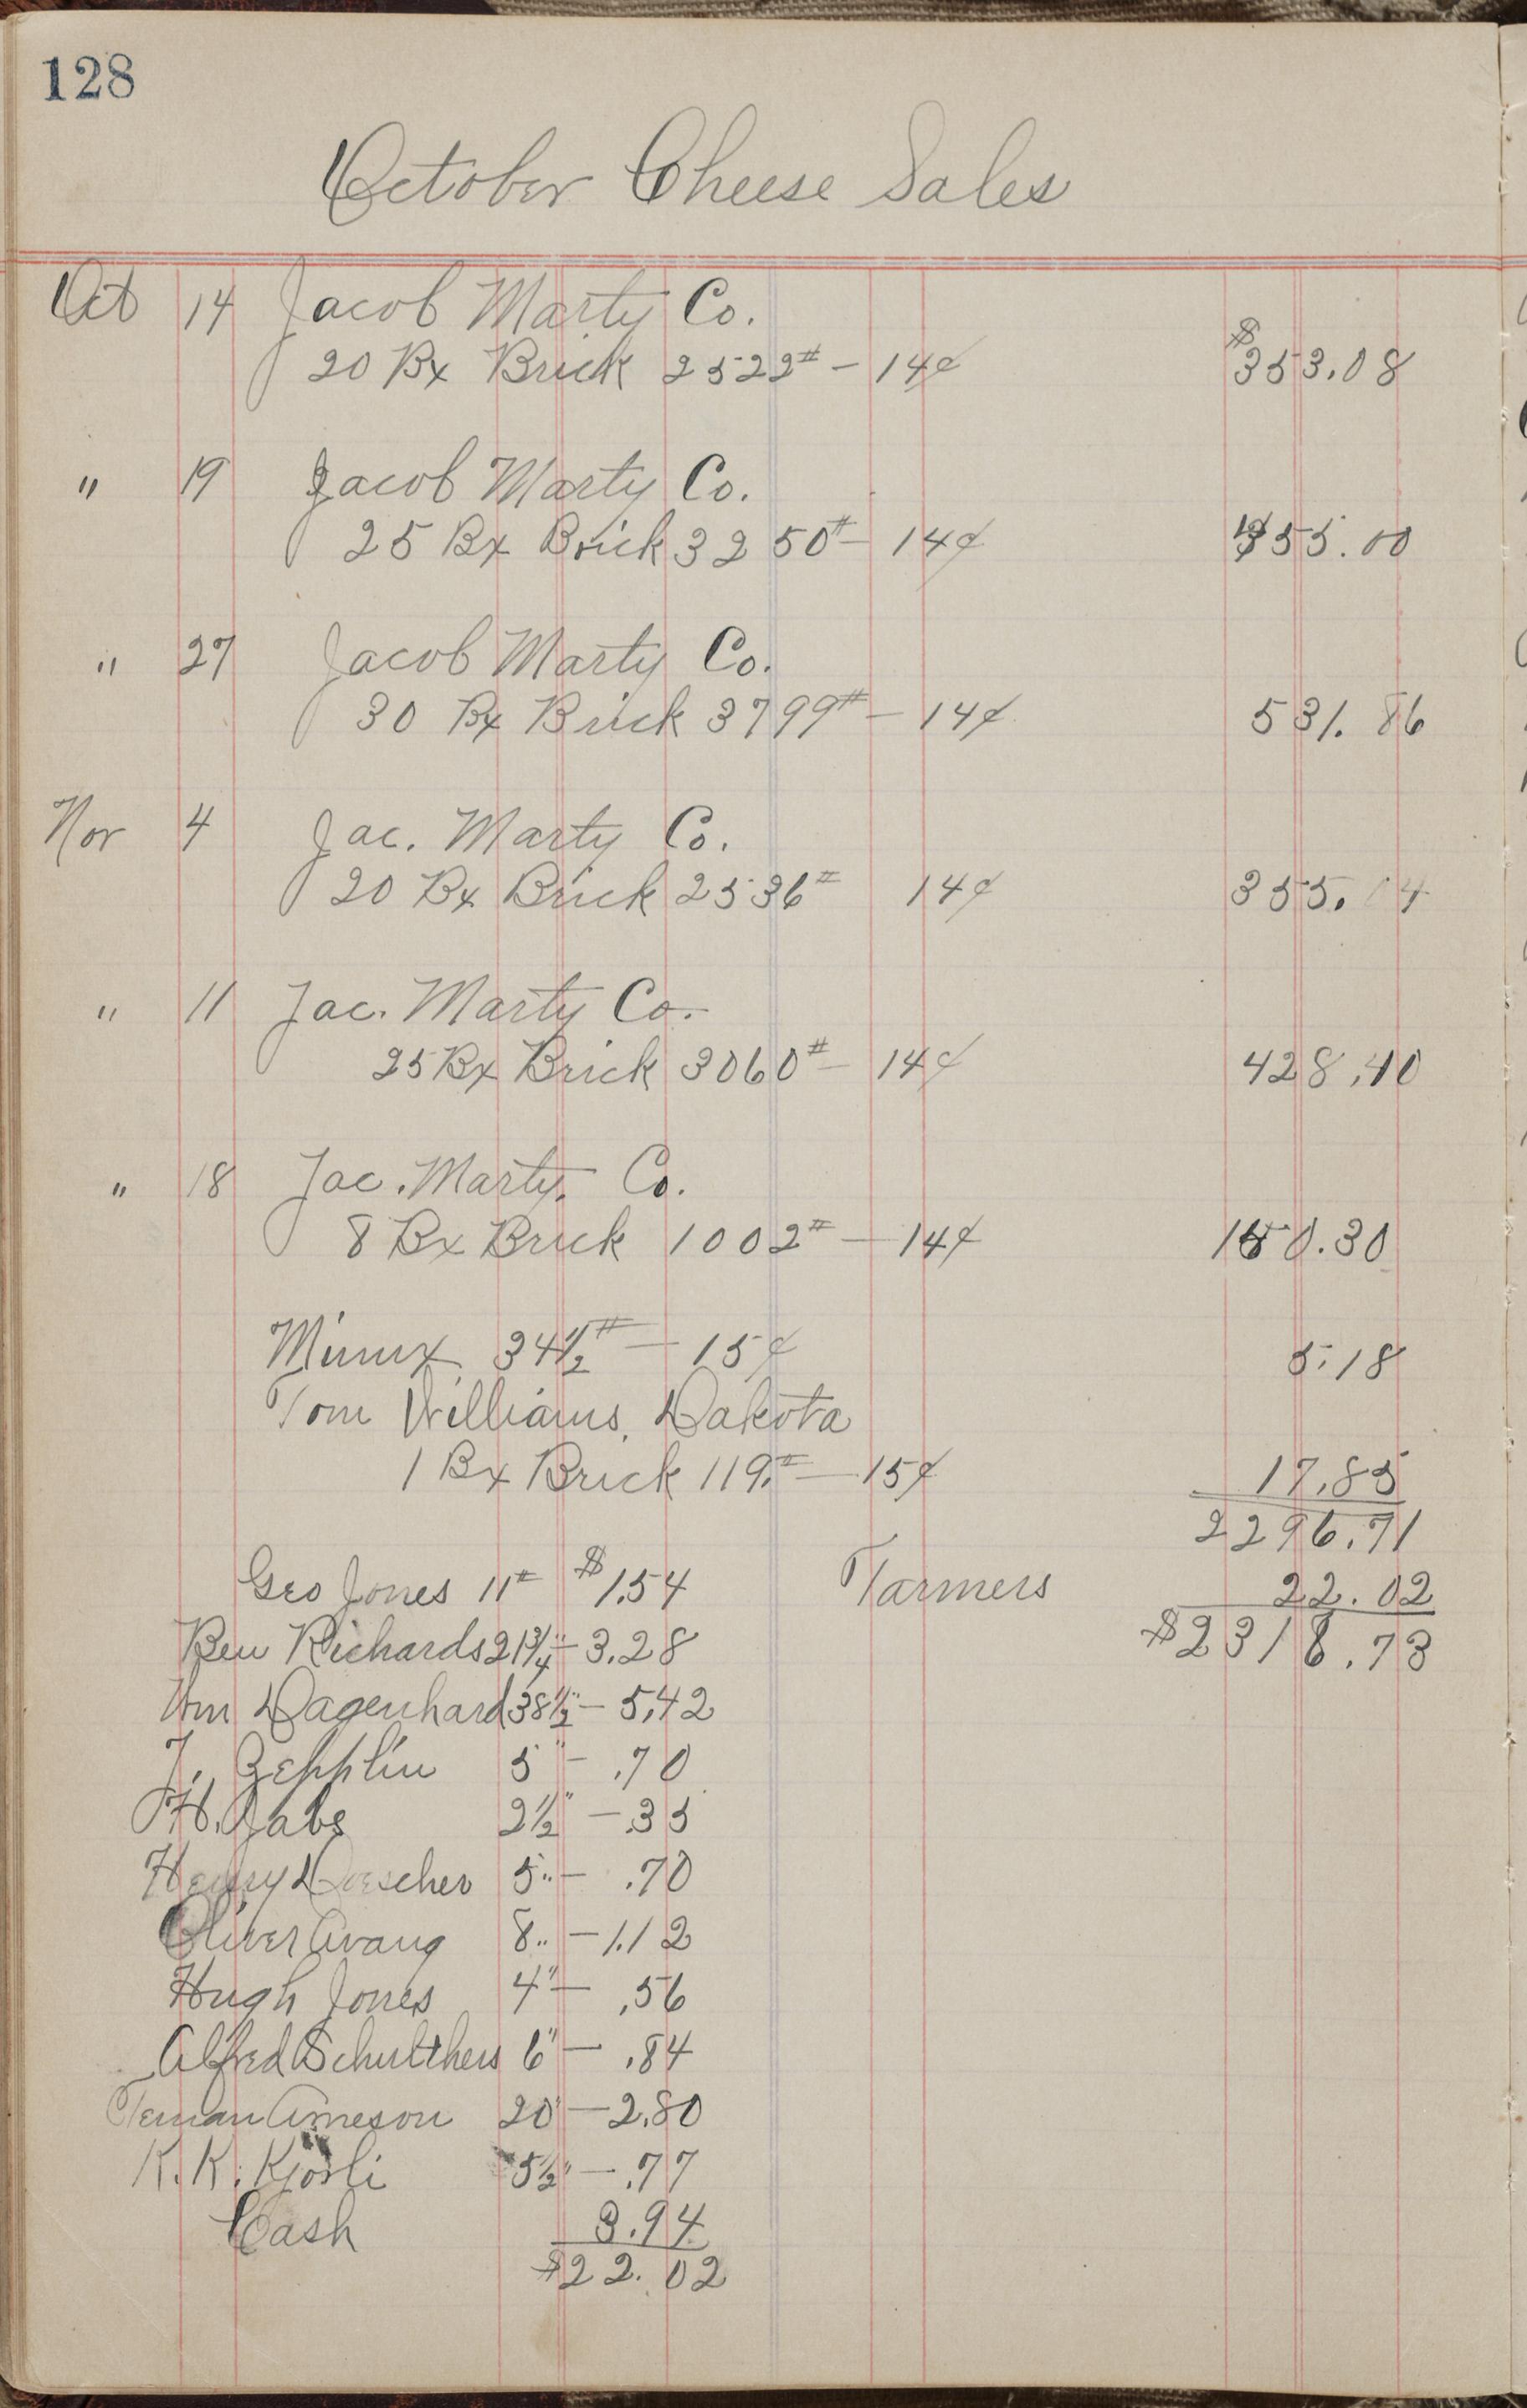 128
October Cheese Sales
Oct 14 Jacob Marty Co.
20 Bx Brick 2522# - 14¢ $353.08
" 19 Jacob Marty Co.
25 Bx Brick 3250# - 14¢ 455.00
" 27 Jacob Marty Co.
30 Bx Brick 3799# - 14¢ 531.86
Nov 4 Jac. Marty Co.
20 Bx Brick 2536# 14¢ 355.04
" 11 Jac. Marty Co.
25 Bx Brick 3060# - 14¢ 428.40
" 18 Jac. Marty Co.
8 Bx Brick 1002# - 14¢ 150.30
34 1/2# - 15¢ 5.18
Tom Williams, Dakota
1 Bx Brick 119.# - 15¢ 17.85
2296.71
Geo Jones 11# $1.54 Farmers 22.02
Ben Richards 21 3/4" - 3.28 $2318.73
Wm Dagenhard 38 1/2" - 5.42
J. Zepplin 5" - .70
H. Jabs 2 1/2" - .35
Henry Doescher 5" - .70
Oliver Avang 8" - 1.12
Hugh Jones 4" - .56
Alfred Schulthers 6" - .84
Teman Ameson 20" - 2.80
K. K. Kjosli 5 1/2" - .77
Cash 3.94
$22.02